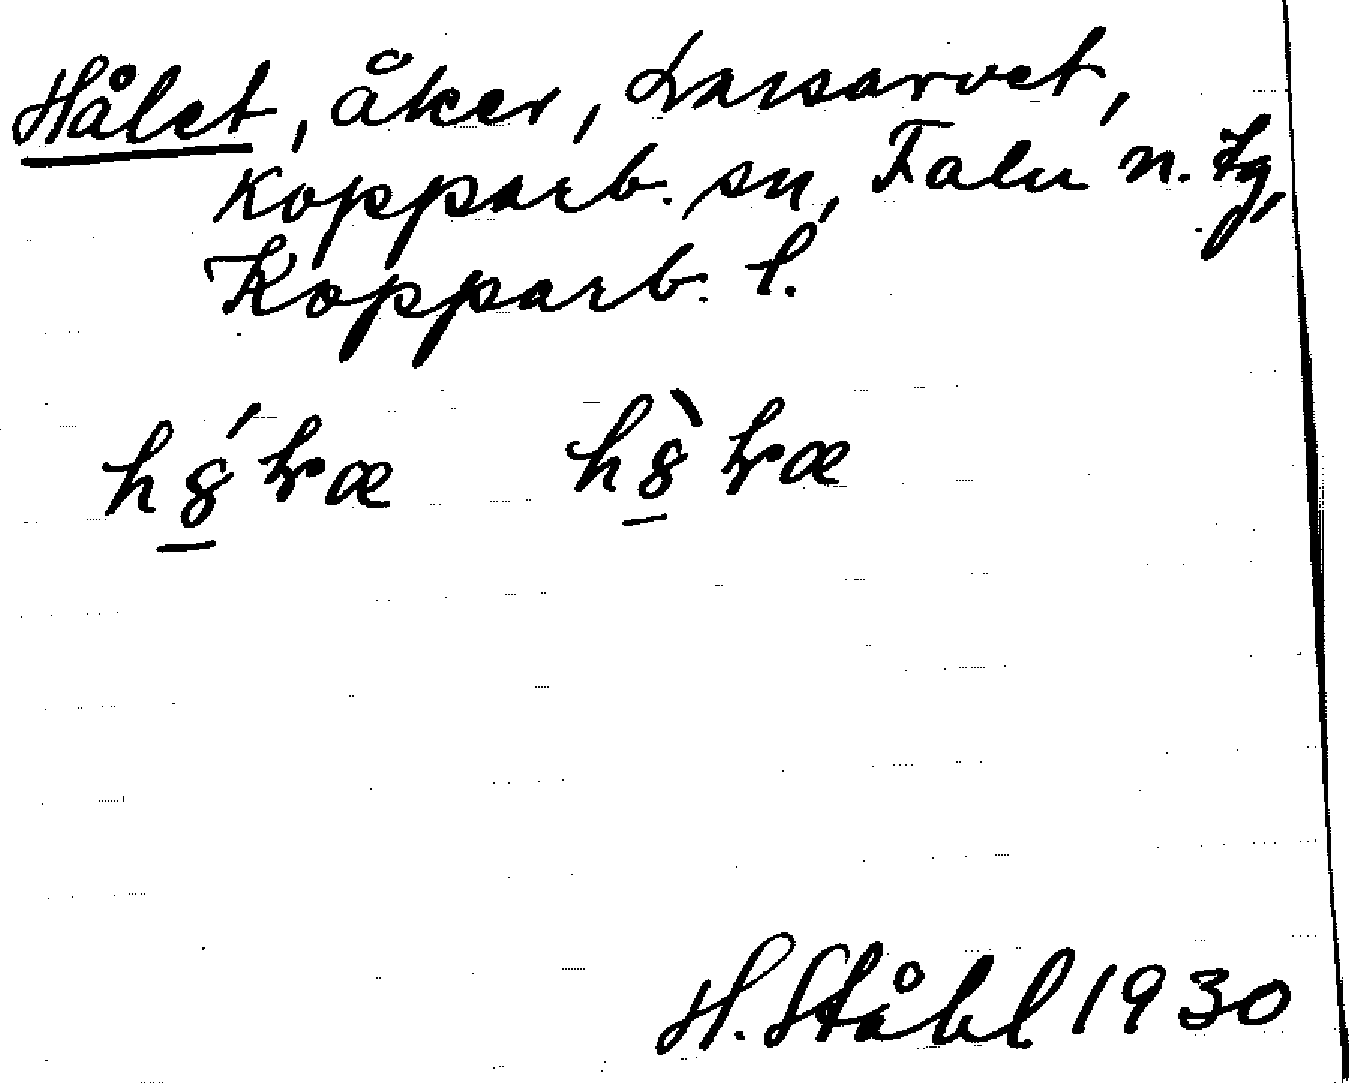 Hålet, åker, Larsarvet,
Kopparb. sn, Falu n. tg,
Kopparb. l.
H. Ståhl 1930